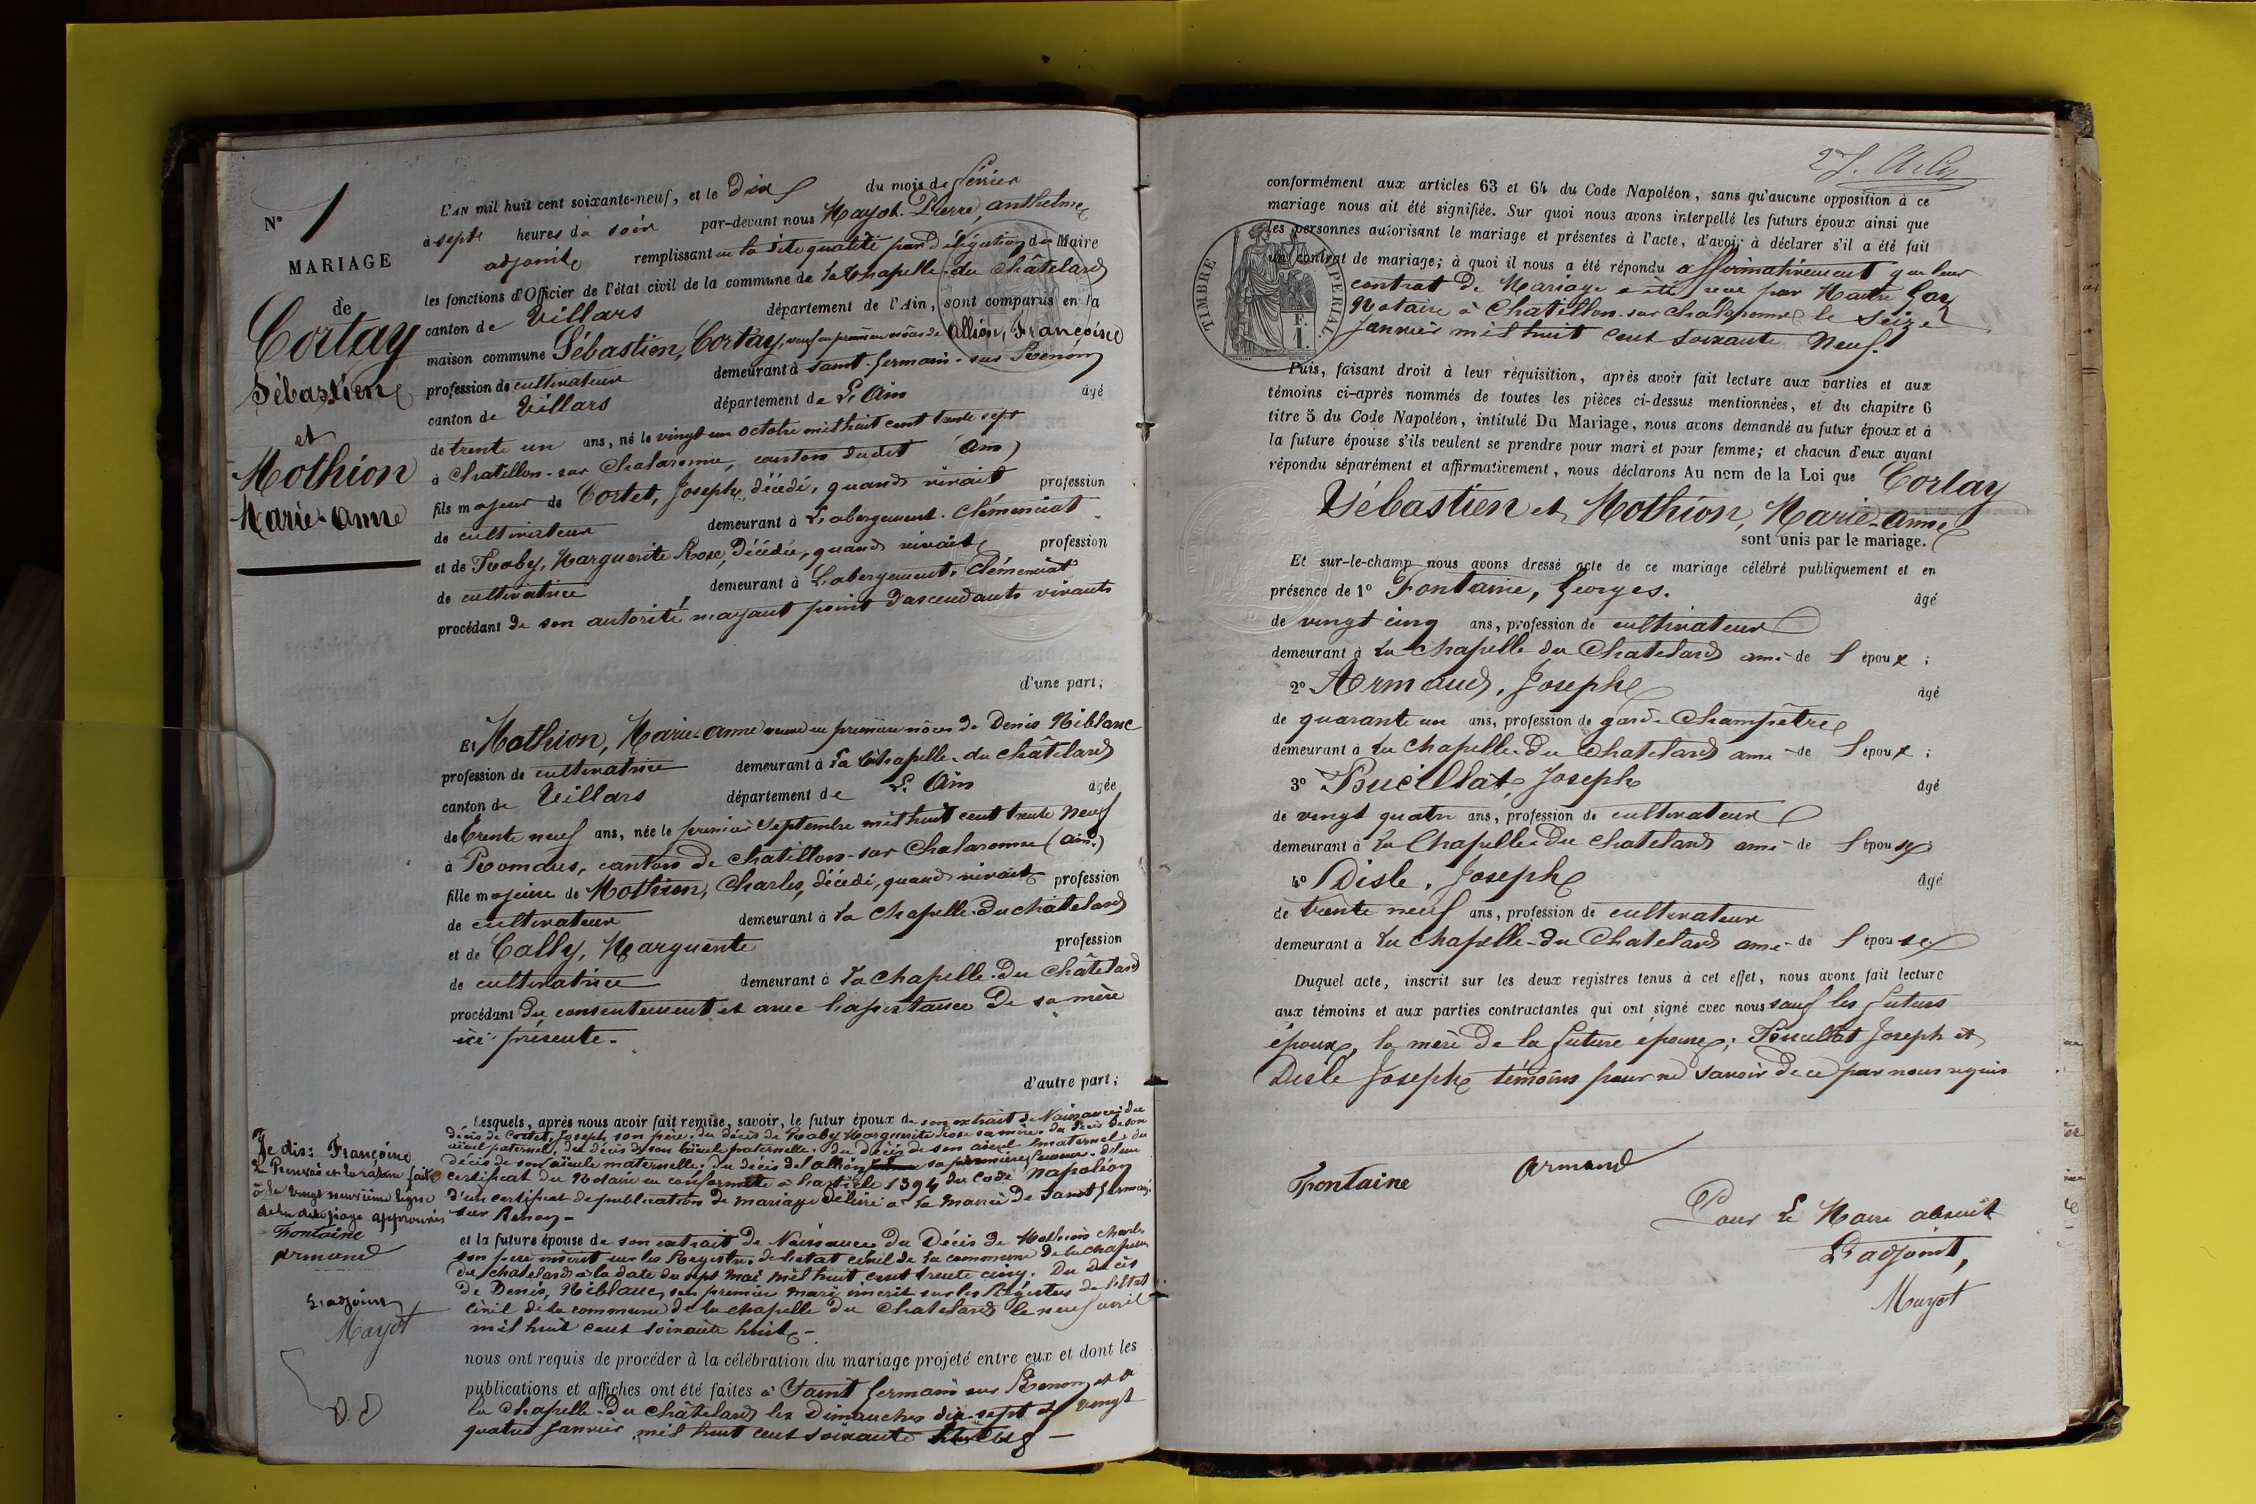 N° 1
MARIAGE
de
Cortay
Sébastien
et
Mothion
Marie-Anne
L'AN mil huit cent soixante-neuf, et le Dix du mois de février
à sept heures du soir par-devant nous Mayot Pierre anthelme
adjoint remplissant en la dite qualité par délégation du Maire
les fonctions d'Officier de l'état civil de la commune de La Chapelle-du Châtelard
canton de Villars département de l'Ain, sont comparus en la
maison commune Sébastien, Cortay, veuf en première nôces de Allion, Françoise
profession de cultivateur demeurant à saint-Germain-sur Renom
canton de Villars département de L'Ain âgé
de trente un ans, né le vingt un octobre mil huit cent trente sept
à Chatillon-sur Chalaronne, canton dudit (Ain)
fils majeur de Cortet, Joseph, décédé, quand vivait profession
de cultivateur demeurant à L'abergement-Clémenciat
et de Raby, Marguerite Rose, décédée, quand vivait profession
de cultivatrice demeurant à L'abergement-Clémenciat
procédant de son autorité n'ayant point d'ascendants vivants
d'une part;
Et Mothion, Marie-Anne veuve en première nôces de Denis Niblanc
profession de cultivatrice demeurant à La Chapelle-du Châtelard
canton de Villars département de L'Ain âgée
de trente neuf ans, née le premier septembre mil huit cent trente neuf
à Romans, canton de Chatillon-sur Chalaronne (ain)
fille majeure de Mothion, Charles, décédé, quand vivait profession
de cultivateur demeurant à La Chapelle-du châtelard
et de Cally, Marguerite profession
de cultivatrice demeurant à La chapelle-du Châtelard
procédant du consentement et avec l'assistance de sa mère
ici présente.
d'autre part;
Lesquels, après nous avoir fait remise, savoir, le futur époux de son extrait de Naissance, du
décès de Cortet, Joseph son père, du décès de Raby Marguerite Rose sa mère, du décès de son
aieul paternel, du décès de son aieule paternelle, du décès de son aieul maternel, du
décès de son aieule maternelle, du décès de allion sa première femme, d'un
certificat du Notaire en conformité à l'article 1394 du Code Napoléon
d'un certificat de publication de mariage délivré à la mairie de saint Germain
sur Renom-
et la future épouse de son extrait de Naissance du Décès de Mothion Charles
son père inscrit sur les Registres de l'état civil de la commune de la chapelle
du chatelard à la date du sept mai mil huit cent trente cinq. Du décès
de Denis, Niblanc, son premier mari inscrit sur les Registres de l'état
civil de la commune de la chapelle du Chatelard le neuf avril
mil huit cent soixante huit-
nous ont requis de procéder à la célébration du mariage projeté entre eux et dont les
publications et affiches ont été faites à Saint Germain sur Renom et à
la chapelle-du châtelard les Dimanches dix-sept et vingt
quatre Janvier mil huit cent soixante neuf
Je dis: Françoise
le Renvoi et la râture faite
à la vingt neuvième ligne
de la dite page approuvés
Fontaine
armand
L'adjoint
Mayot
conformément aux articles 63 et 64 du Code Napoléon, sans qu'aucune opposition à ce
mariage nous ait été signifiée. Sur quoi nous avons interpellé les futurs époux ainsi que
les personnes autorisant le mariage et présentes à l'acte, d'avoir à déclarer s'il a été fait
un contrat de mariage; à quoi il nous a été répondu affirmativement que leur
contrat de Mariage a été reçu par Maître Gay
Notaire à Chatillon-sur Chalaronne le seize
Janvier mil huit cent soixante Neuf.
TIMBRE IMPERIAL
F. 1.
Puis, faisant droit à leur réquisition, après avoir fait lecture aux parties et aux
témoins ci-après nommés de toutes les pièces ci-dessus mentionnées, et du chapitre 6
titre 5 du Code Napoléon, intitulé Du Mariage, nous avons demandé au futur époux et à
la future épouse s'ils veulent se prendre pour mari et pour femme; et chacun d'eux ayant
répondu séparément et affirmativement, nous déclarons Au nom de la Loi que Cortay
Sébastien et Mothion, Marie-Anne
sont unis par le mariage.
Et sur-le-champ nous avons dressé acte de ce mariage célébré publiquement et en
présence de 1° Fontaine, Georges. âgé
de vingt cinq ans, profession de cultivateur
demeurant à La Chapelle du Chatelard ami de l'époux;
2° Armand, Joseph âgé
de quarante un ans, profession de garde Champêtre
demeurant à La chapelle-Du Chatelard ami de l'époux;
3° Bucillat Joseph âgé
de vingt quatre ans, profession de cultivateur
demeurant à La Chapelle-du Chatelard ami de l'épouse;
4° Disle, Joseph âgé
de trente neuf ans, profession de cultivateur
demeurant à La chapelle-du Chatelard ami de l'épouse
Duquel acte, inscrit sur les deux registres tenus à cet effet, nous avons fait lecture
aux témoins et aux parties contractantes qui ont signé avec nous sauf les futurs
époux, la mère de la future épouse, Bucillat Joseph et
Disle Joseph témoins pour ne savoir de ce par nous requis
Fontaine
armand
Pour Le Maire absent
L'adjoint,
Mayot